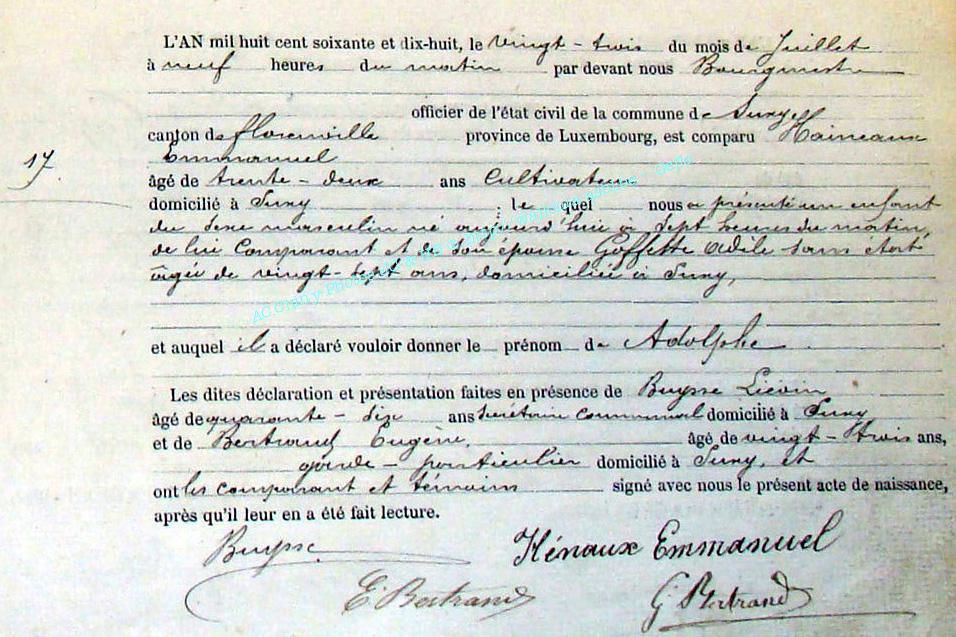 L'AN mil huit cent soixante et dix-huit, le vingt-trois du mois de Juillet
à neuf heures du matin par devant nous Bourgmestre
officier de l'état civil de la commune de Suxy
canton de florenville province de Luxembourg, est comparu Haineaux
17 Emmanuel
âgé de trente-deux ans Cultivateur
domicilié à Suxy ; le quel nous a présenté un enfant
du sexe masculin né aujourd'hui à sept heures du matin,
de lui comparant et de son épouse Goffette Adile sans état
âgée de vingt-sept ans, domiciliée à Suxy,
et auquel il a déclaré vouloir donner le prénom de Adolphe
Les dites déclaration et présentation faites en présence de Buysse Liévin
âgé de quarante-six ans Secrétaire communal domicilié à Suxy
et de Bertrand Eugène, âgé de vingt-trois ans,
garde-particulier domicilié à Suxy, et
ont les comparant et témoins signé avec nous le présent acte de naissance,
après qu'il leur en a été fait lecture.
Buysse Hénaux Emmanuel
E. Bertrand G Bertrand